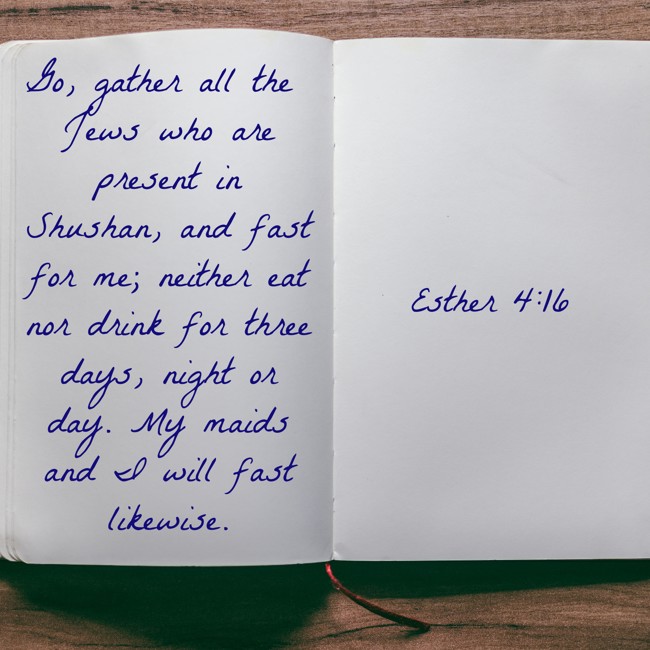 Go, gather all the
Jews who are
present in
Shushan, and fast
for me; neither eat
nor drink for three
days, night or
day. My maids
and I will fast
likewise.
Esther 4:16